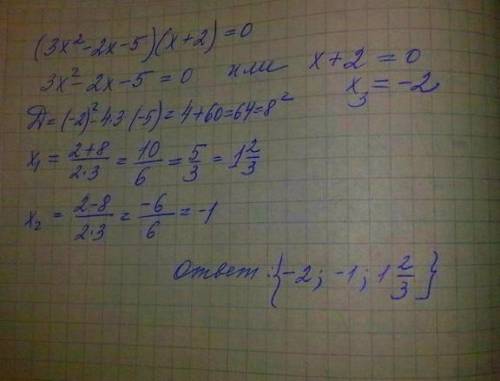 (3x²-2x-5)(x+2)=0
3x²-2x-5=0 или x+2=0
x₃=-2
Д=(-2)²-4·3·(-5)=4+60=64=8²
x₁=\frac{2+8}{2·3}=\frac{10}{6}=\frac{5}{3}=1\frac{2}{3}
x₂=\frac{2-8}{2·3}=\frac{-6}{6}=-1
Ответ:{-2; -1; 1\frac{2}{3}}